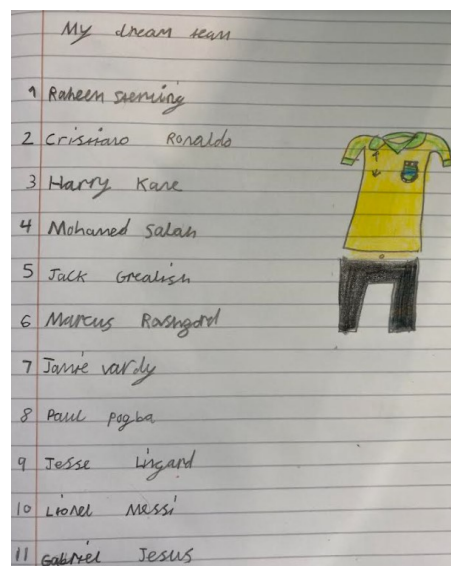 My dream team
1 Raheem Sterling
2 Cristiano Ronaldo
3 Harry Kane
4 Mohamed Salah
5 Jack Grealish
6 Marcus Rashford
7 Jamie vardy
8 Paul pogba
9 Jesse Lingard
10 Lionel Messi
11 Gabriel Jesus